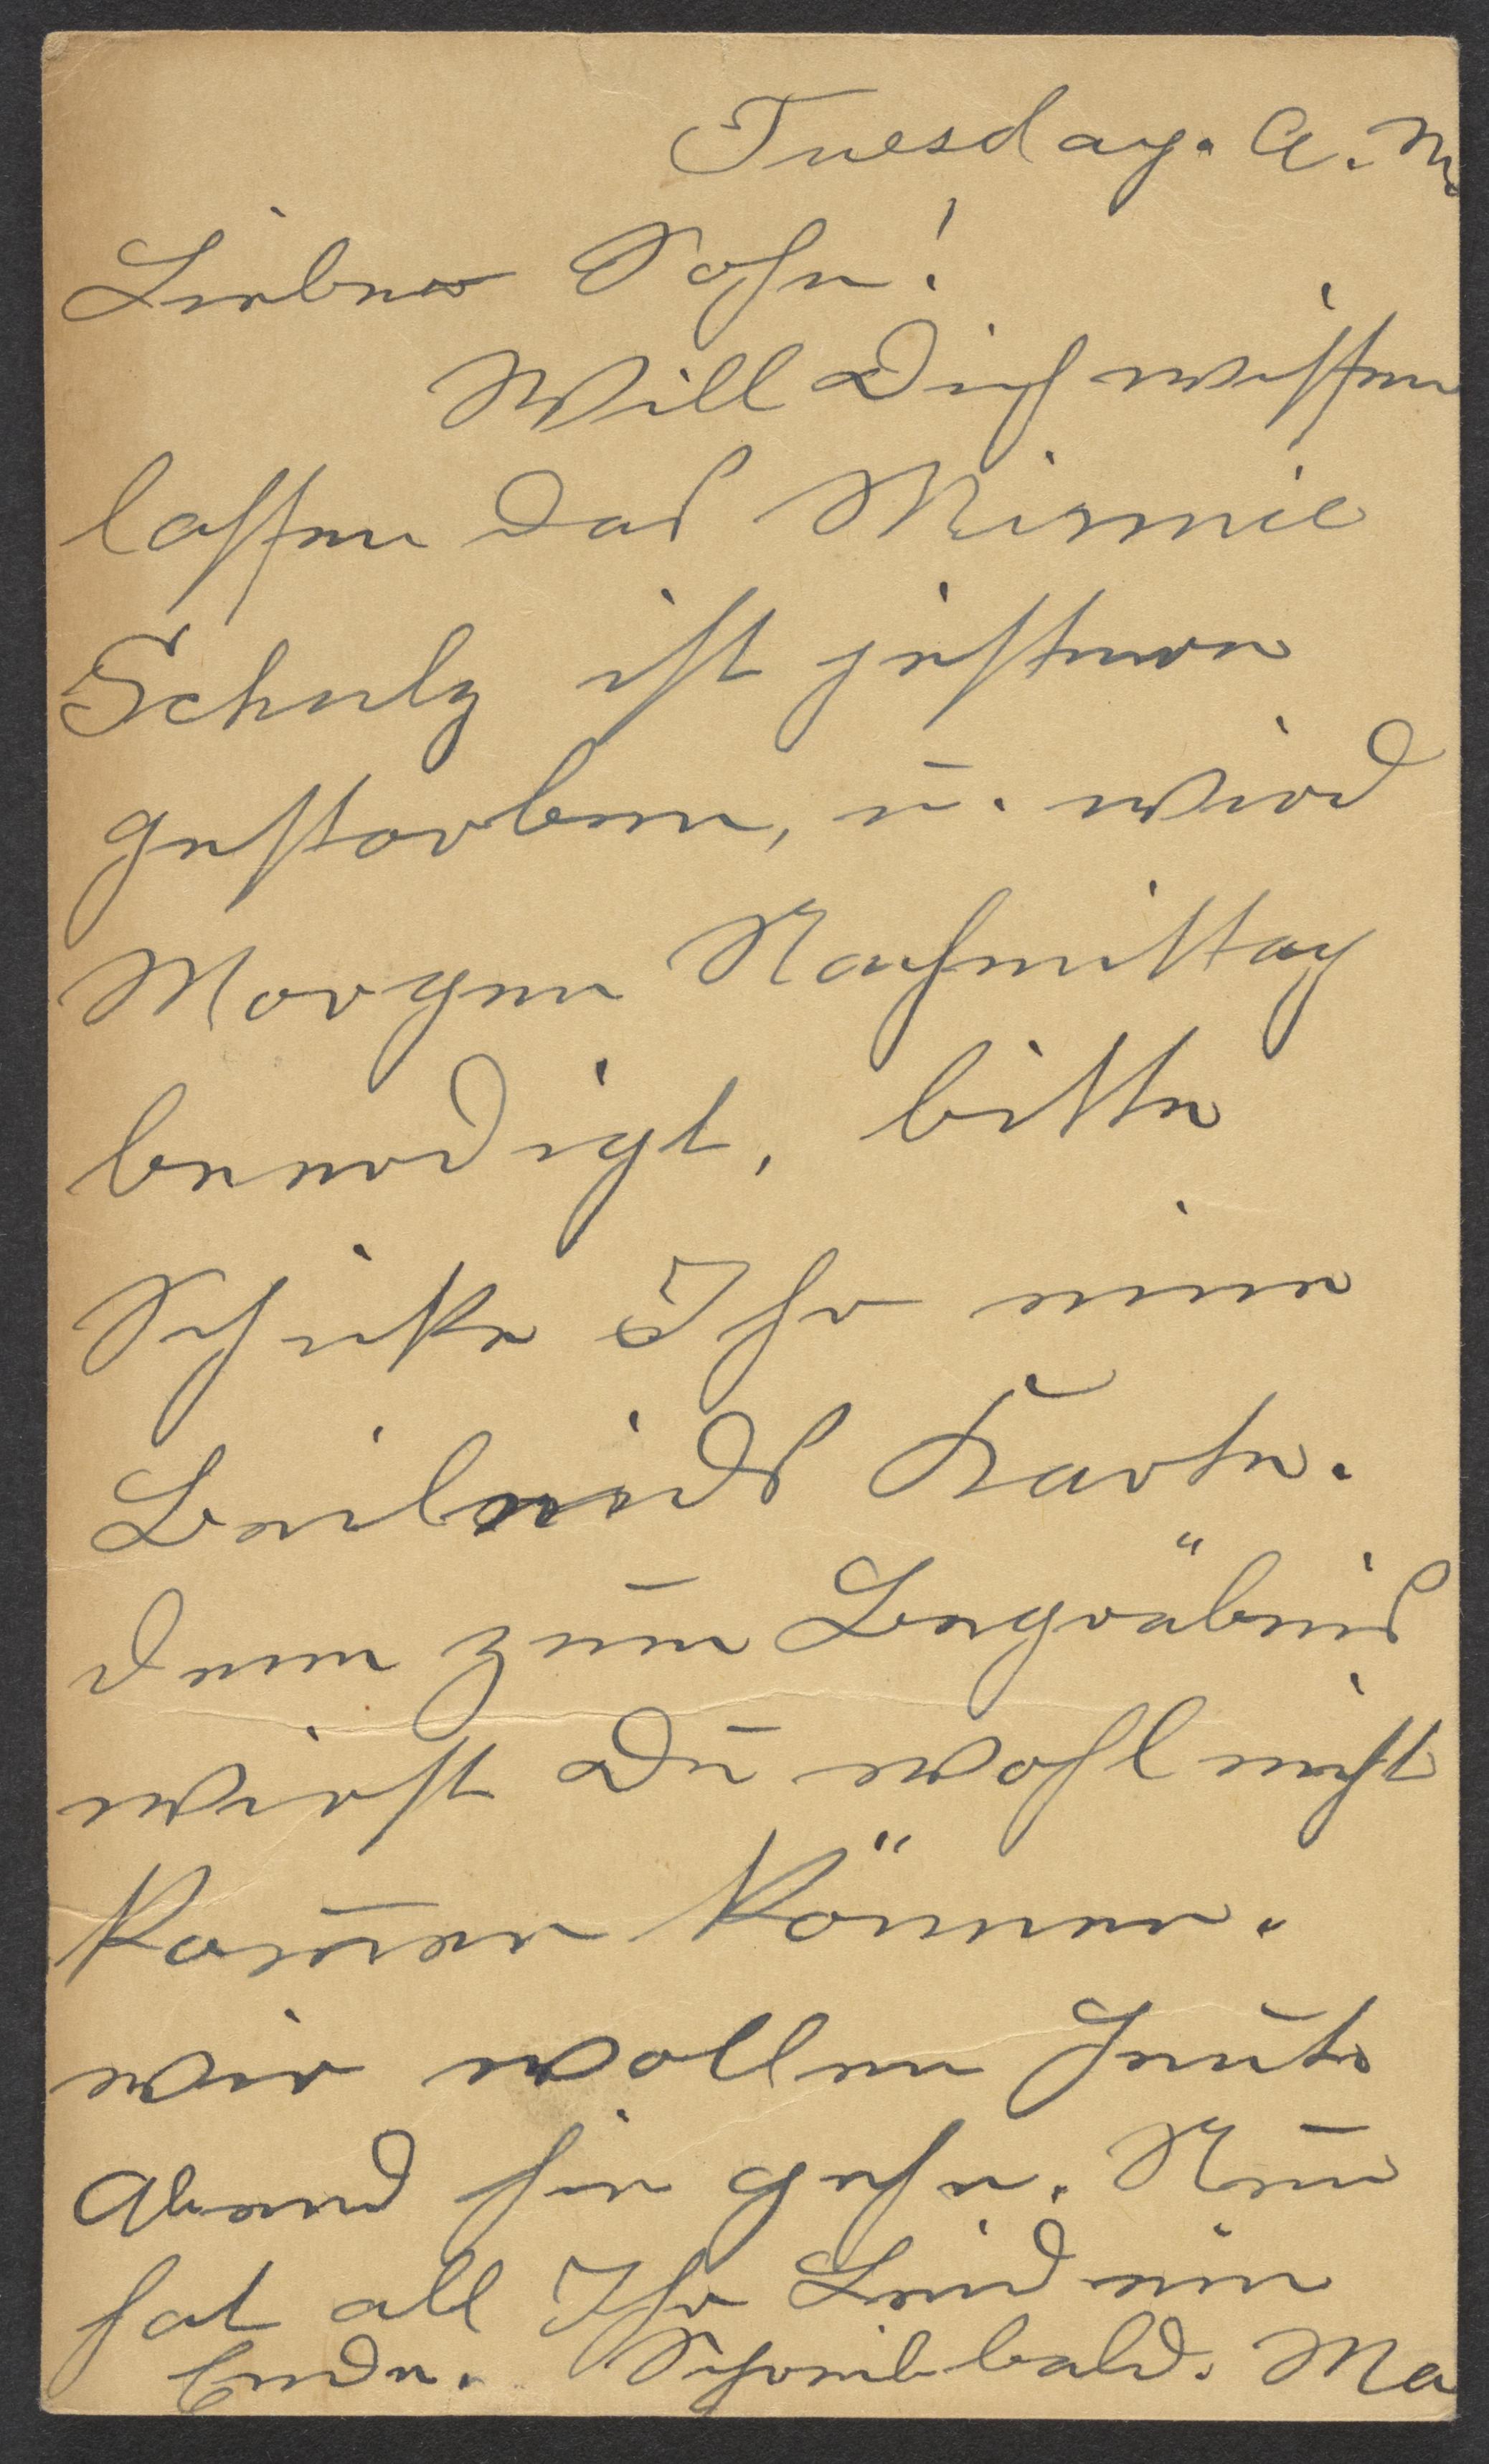 Tuesday. A. M.
Lieber Sohn!
Will Dich wissen
lassen das Minnie
Schulz ist gestern
gestorben, u. wird
Morgen Nachmittag
beerdigt, bitte
Schicke Ihr eine
Beileids Karte.
denn zum Begräbnis
wirst Du wohl nicht
kom̄en können.
wir wollen heute
Abend hin gehn. Nun
hat all Ihr Leid ein
Ende. Schreib bald. Ma